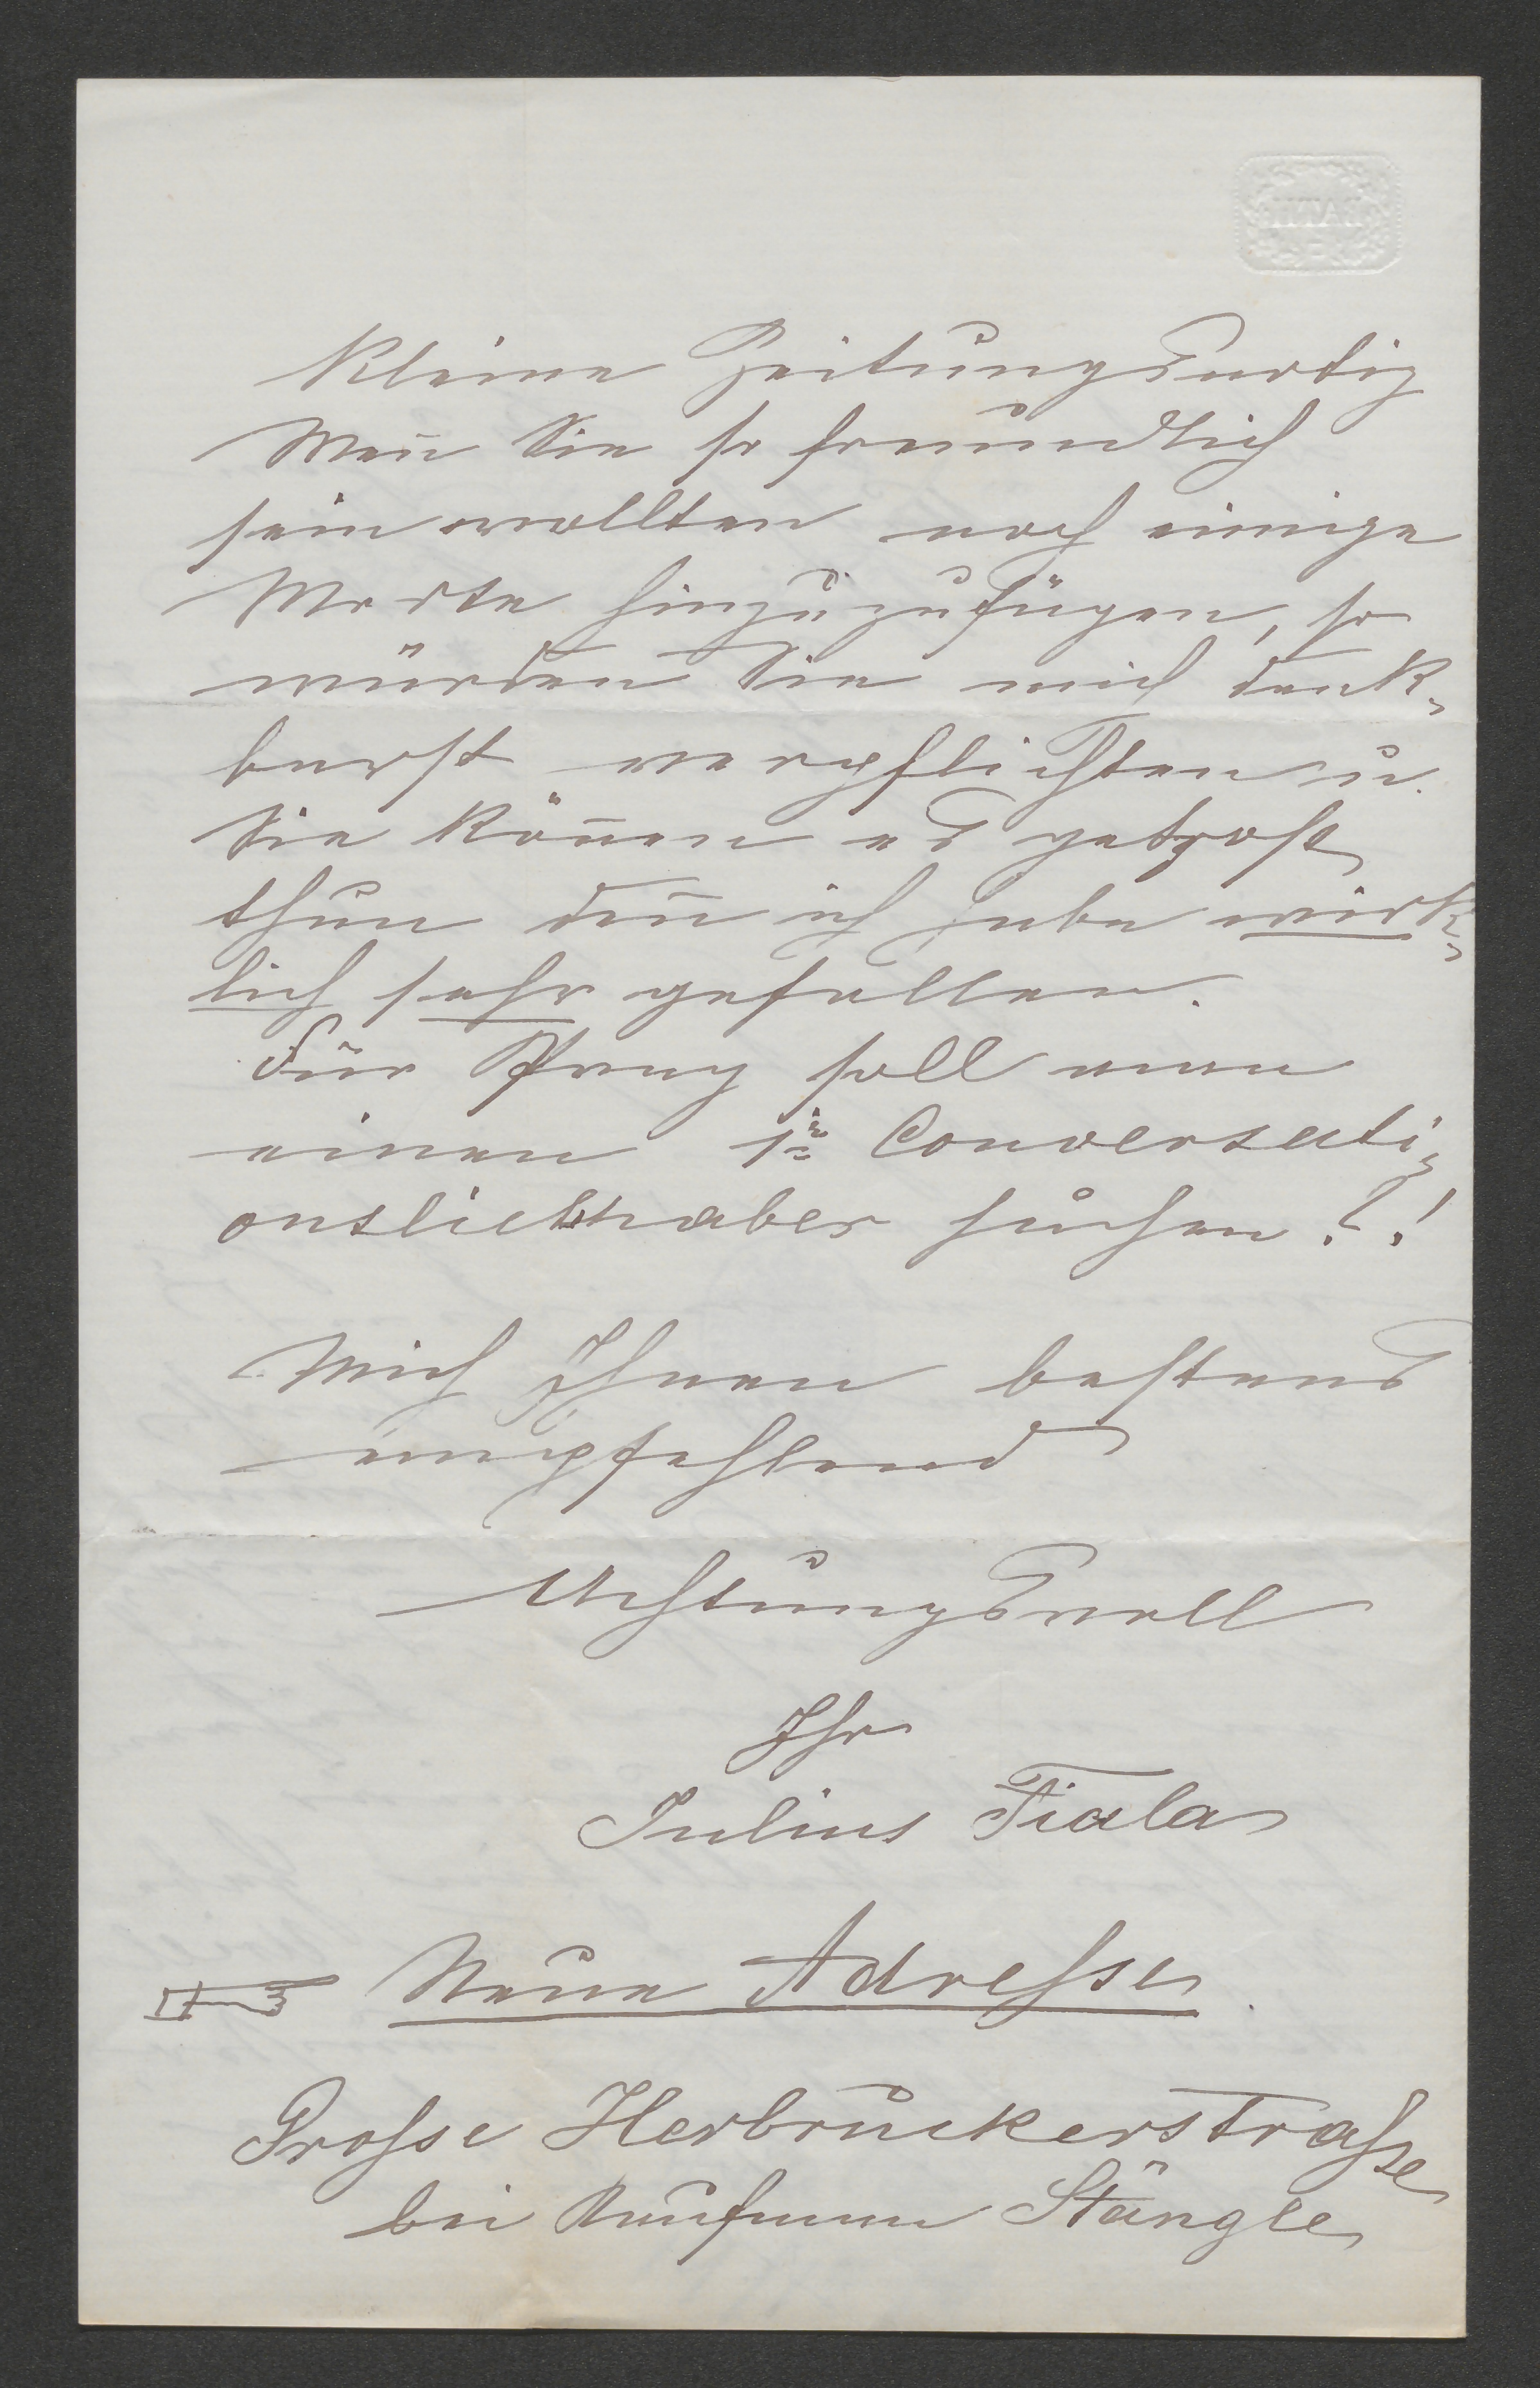 kleine Zeitungsnotiz
Wen̄ Sie so freundlich
sein wollten noch einige
Worte hinzuzufügen, so
würden Sie mich dank-
barst verpflichten u.
Sie kön̄en es getrost
thun den̄ ich habe wirk-
lich sehr gefallen.
Für Prag soll man
einen 1n Conversati-
onsliebhaber suchen?!
Mich Ihnen bestens
empfehlend
Achtungsvoll
Ihr
Julius Fiala
Neue Adresse.
Grosse Herbruckerstrasse
bei Kaufmann Stängle